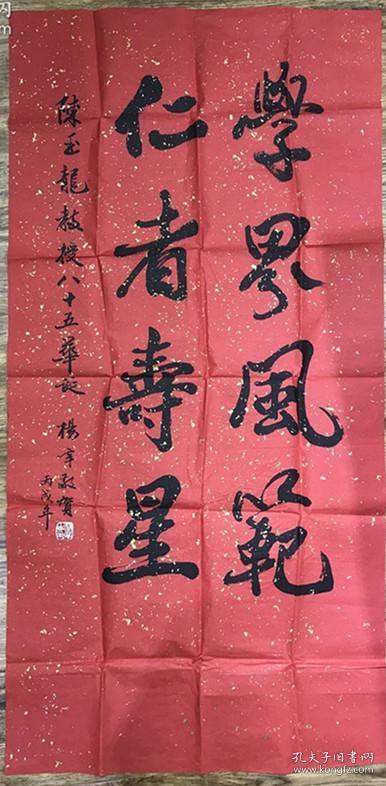 學界風範
仁者壽星
陳玉龍教授八十五華誕 楊辛敬賀
丙戌年
孔夫子旧书网
www.kongfz.com